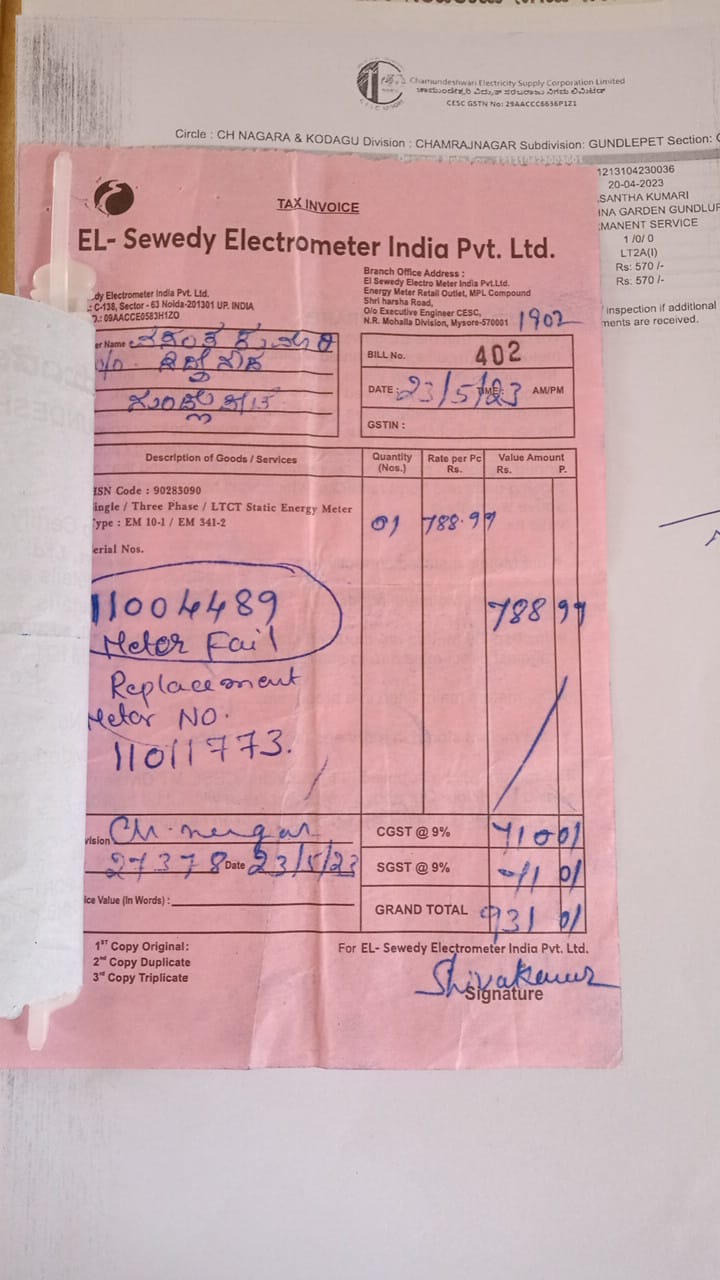 Chamundeshwari Electricity Supply Corporation Limited
ಚಾಮುಂಡೇಶ್ವರಿ ವಿದ್ಯುತ್ ಸರಬರಾಜು ನಿಗಮ ನಿಯಮಿತ
CESC GSTN No: 29AACCC6636P1Z1
Circle : CH NAGARA & KODAGU Division : CHAMRAJNAGAR Subdivision: GUNDLEPET Section:
1213104230036
20-04-2023
SANTHA KUMARI
NA GARDEN GUNDLUP
MANENT SERVICE
1 /0/ 0
LT2A(I)
Rs: 570 /-
Rs: 570 /-
inspection if additional
ments are received.
TAX INVOICE
EL- Sewedy Electrometer India Pvt. Ltd.
dy Electrometer India Pvt. Ltd.
C-138, Sector - 63 Noida-201301 UP. INDIA
09AACCE0583H1ZO
Branch Office Address :
El Sewedy Electro Meter India Pvt.Ltd.
Energy Meter Retail Outlet, MPL Compound
Shri harsha Road,
O/o Executive Engineer CESC,
N.R. Mohalla Division, Mysore-570001 1902
er Name
BILL No. 402
DATE : 23/5/23 TIME: AM/PM
GSTIN :
Description of Goods / Services Quantity (Nos.) Rate per Pc Rs. Value Amount Rs. P.
ISN Code : 90283090
ingle / Three Phase / LTCT Static Energy Meter
ype : EM 10-1 / EM 341-2 01 788.99
erial Nos.
11004489 788 99
Meter Fail
Replacement
Meter NO.
11011773.
vision Ch. nagar CGST @ 9% 71 01
27378 Date 23/5/23 SGST @ 9% 71 01
ice Value (In Words) : GRAND TOTAL 931 01
1ST Copy Original:
2nd Copy Duplicate
3rd Copy Triplicate
For EL- Sewedy Electrometer India Pvt. Ltd.
Shivakumar
Signature